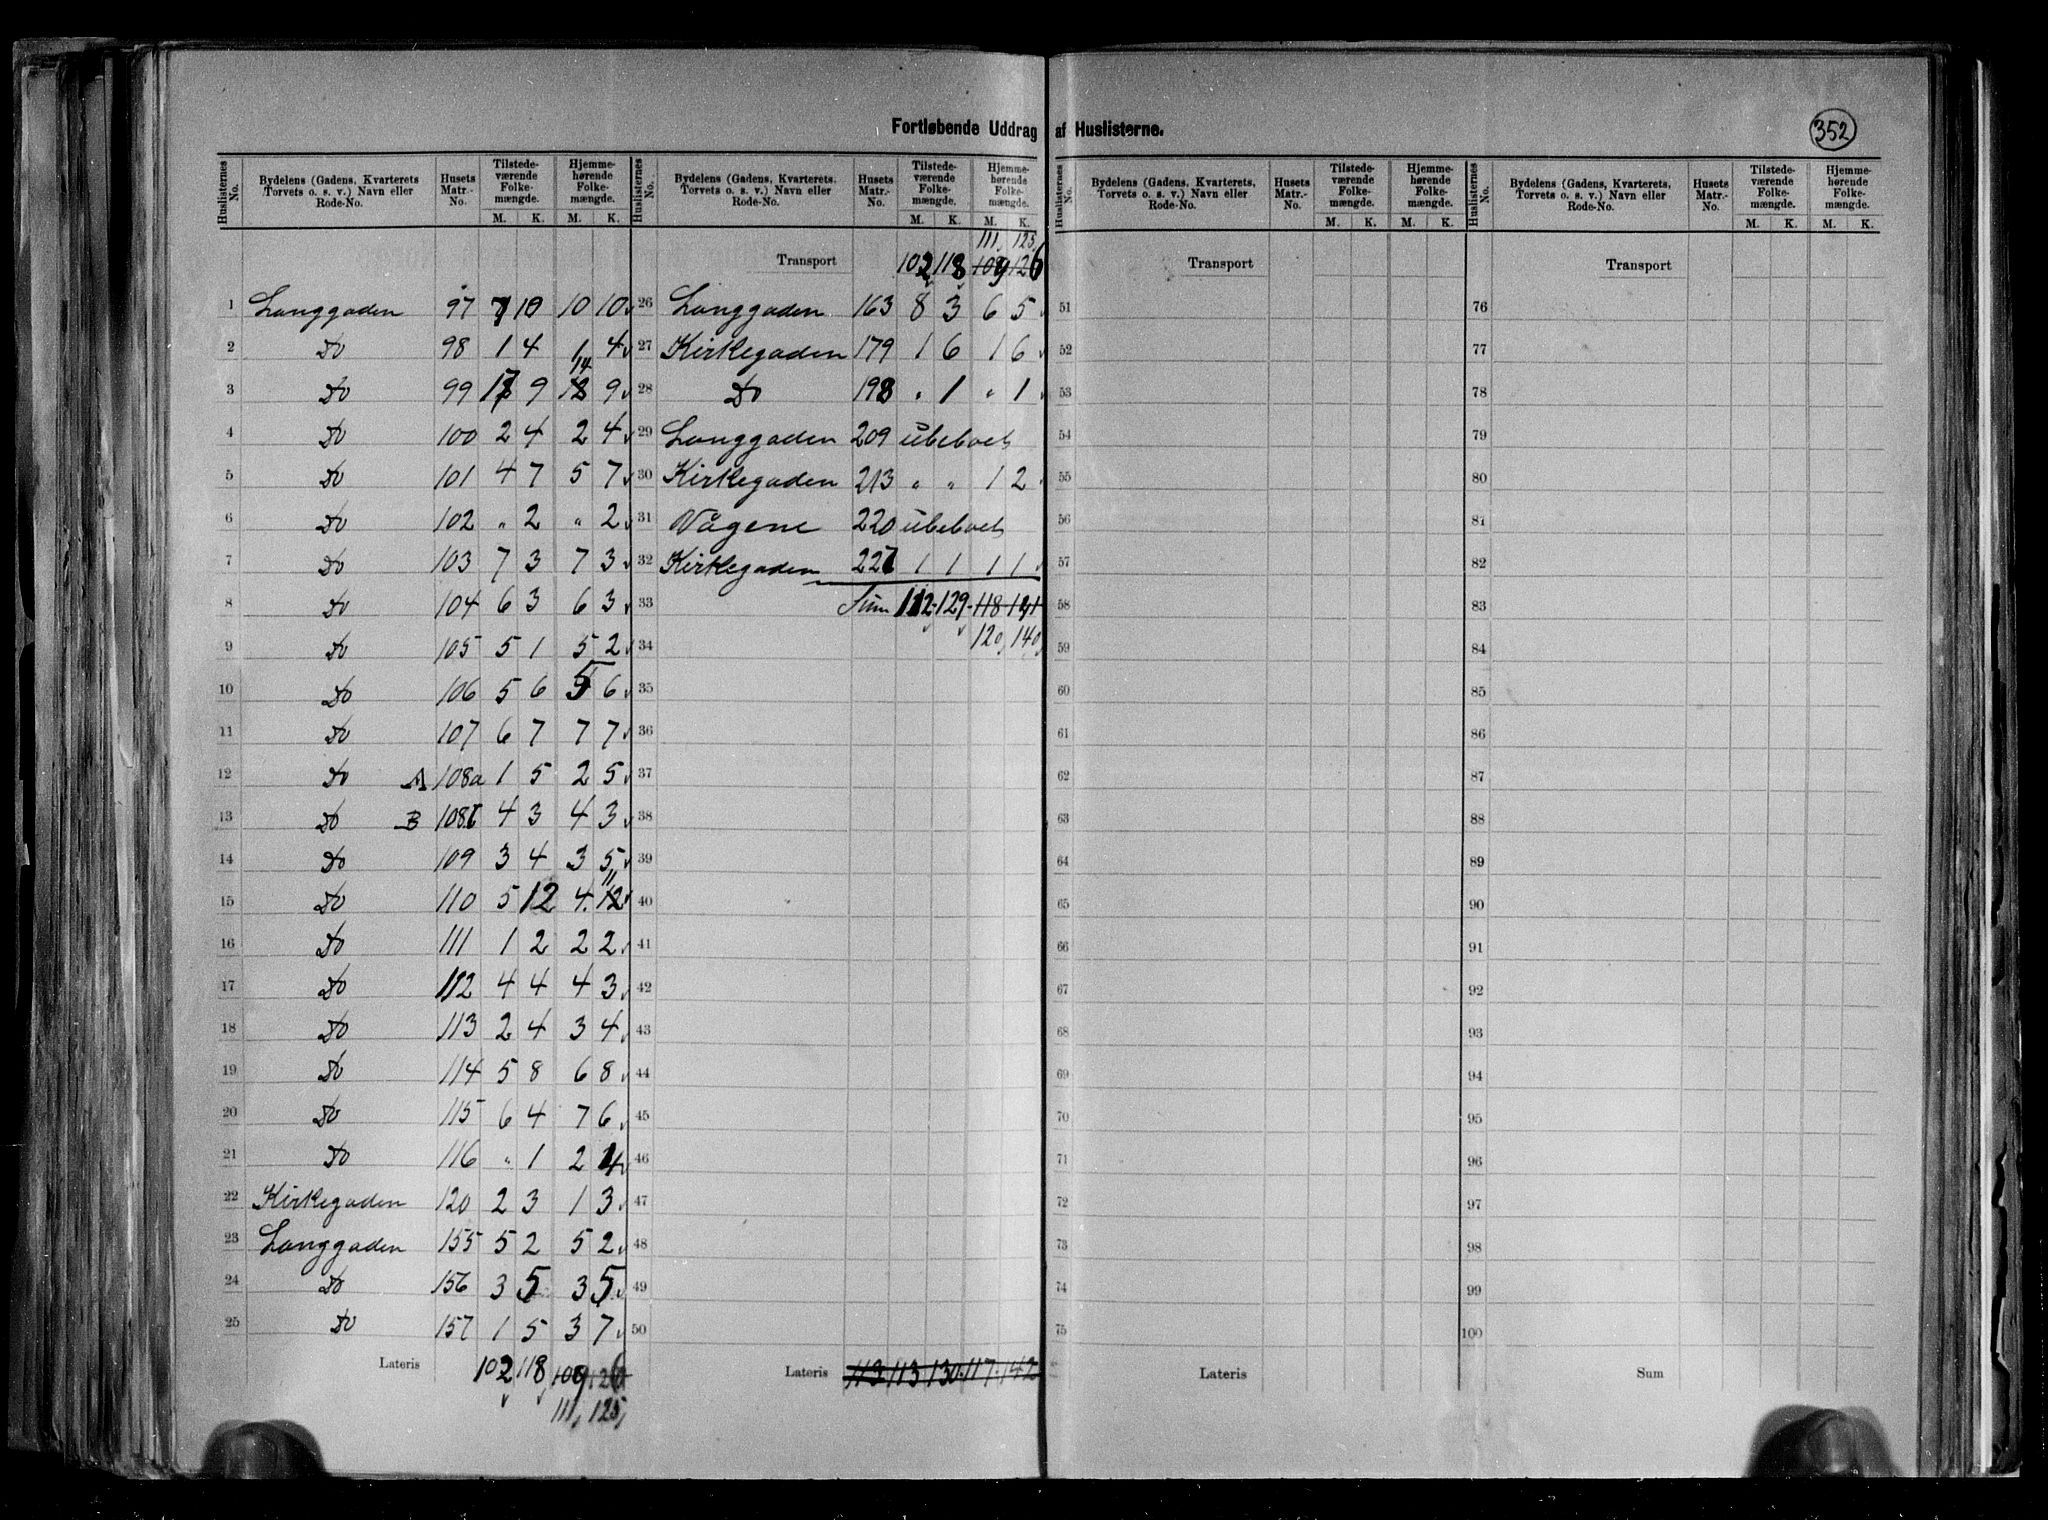 Fortløbende Uddrag af Huslisterne.
352
Huslisternes No. Bydelens (Gadens, Kvarterets, Torvets o. s. v.) Navn eller Rode-No. Husets Matr.-No. Tilstedeværende Folkemængde. M. K. Hjemmehørende Folkemængde. M. K.
1 Langgaden 97 7 10 10 10
2 Do 98 1 4 1 4
3 Do 99 17 9 14 9
4 Do 100 2 4 2 4
5 Do 101 4 7 5 7
6 Do 102 " 2 " 2
7 Do 103 7 3 7 3
8 Do 104 6 3 6 3
9 Do 105 5 1 5 2
10 Do 106 5 6 5 6
11 Do 107 6 7 7 7
12 Do A 108a 1 5 2 5
13 Do B 108b 4 3 4 3
14 Do 109 3 4 3 5
15 Do 110 5 12 4 12 11
16 Do 111 1 2 2 2
17 Do 112 4 4 4 3
18 Do 113 2 4 3 4
19 Do 114 5 8 6 8
20 Do 115 6 4 7 6
21 Do 116 " 1 2 4
22 Kirkegaden 120 2 3 1 3
23 Langgaden 155 5 2 5 2
24 Do 156 3 5 3 5
25 Do 157 1 5 3 7
Lateris 102 118 109 126
111 125
Huslisternes No. Bydelens (Gadens, Kvarterets, Torvets o. s. v.) Navn eller Rode-No. Husets Matr.-No. Tilstedeværende Folkemængde. M. K. Hjemmehørende Folkemængde. M. K.
111 125
Transport 102 118 109 126
26 Langgaden 163 8 3 6 5
27 Kirkegaden 179 1 6 1 6
28 Do 198 " 1 " 1
29 Langgaden 209 ubeboet
30 Kirkegaden 213 " " 1 2
31 Vågene 220 ubeboet
32 Kirkegaden 221 1 1 1 1
33 Sum 112 129 118 141
34 120 140
35
36
37
38
39
40
41
42
43
44
45
46
47
48
49
50
Lateris 113 113 130 117 142
Huslisternes No. Bydelens (Gadens, Kvarterets, Torvets o. s. v.) Navn eller Rode-No. Husets Matr.-No. Tilstedeværende Folkemængde. M. K. Hjemmehørende Folkemængde. M. K.
Transport
51
52
53
54
55
56
57
58
59
60
61
62
63
64
65
66
67
68
69
70
71
72
73
74
75
Lateris
Huslisternes No. Bydelens (Gadens, Kvarterets, Torvets o. s. v.) Navn eller Rode-No. Husets Matr.-No. Tilstedeværende Folkemængde. M. K. Hjemmehørende Folkemængde. M. K.
Transport
76
77
78
79
80
81
82
83
84
85
86
87
88
89
90
91
92
93
94
95
96
97
98
99
100
Sum